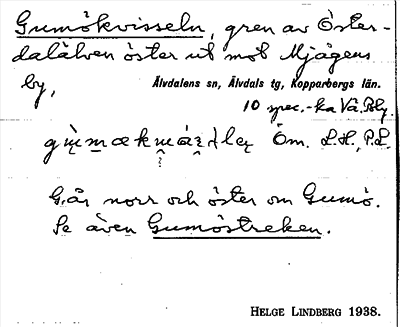 Gumökvisseln, gren av Öster-
dalälven öster ut mot Mjågens
by,
Älvdalens sn, Älvdals tg, Kopparbergs län.
10 spec.-ka Vä. Bly.
Öm. L.H., P.L.
Går norr och öster om Gumö.
Se även Gumöstreken.
HELGE LINDBERG 1938.